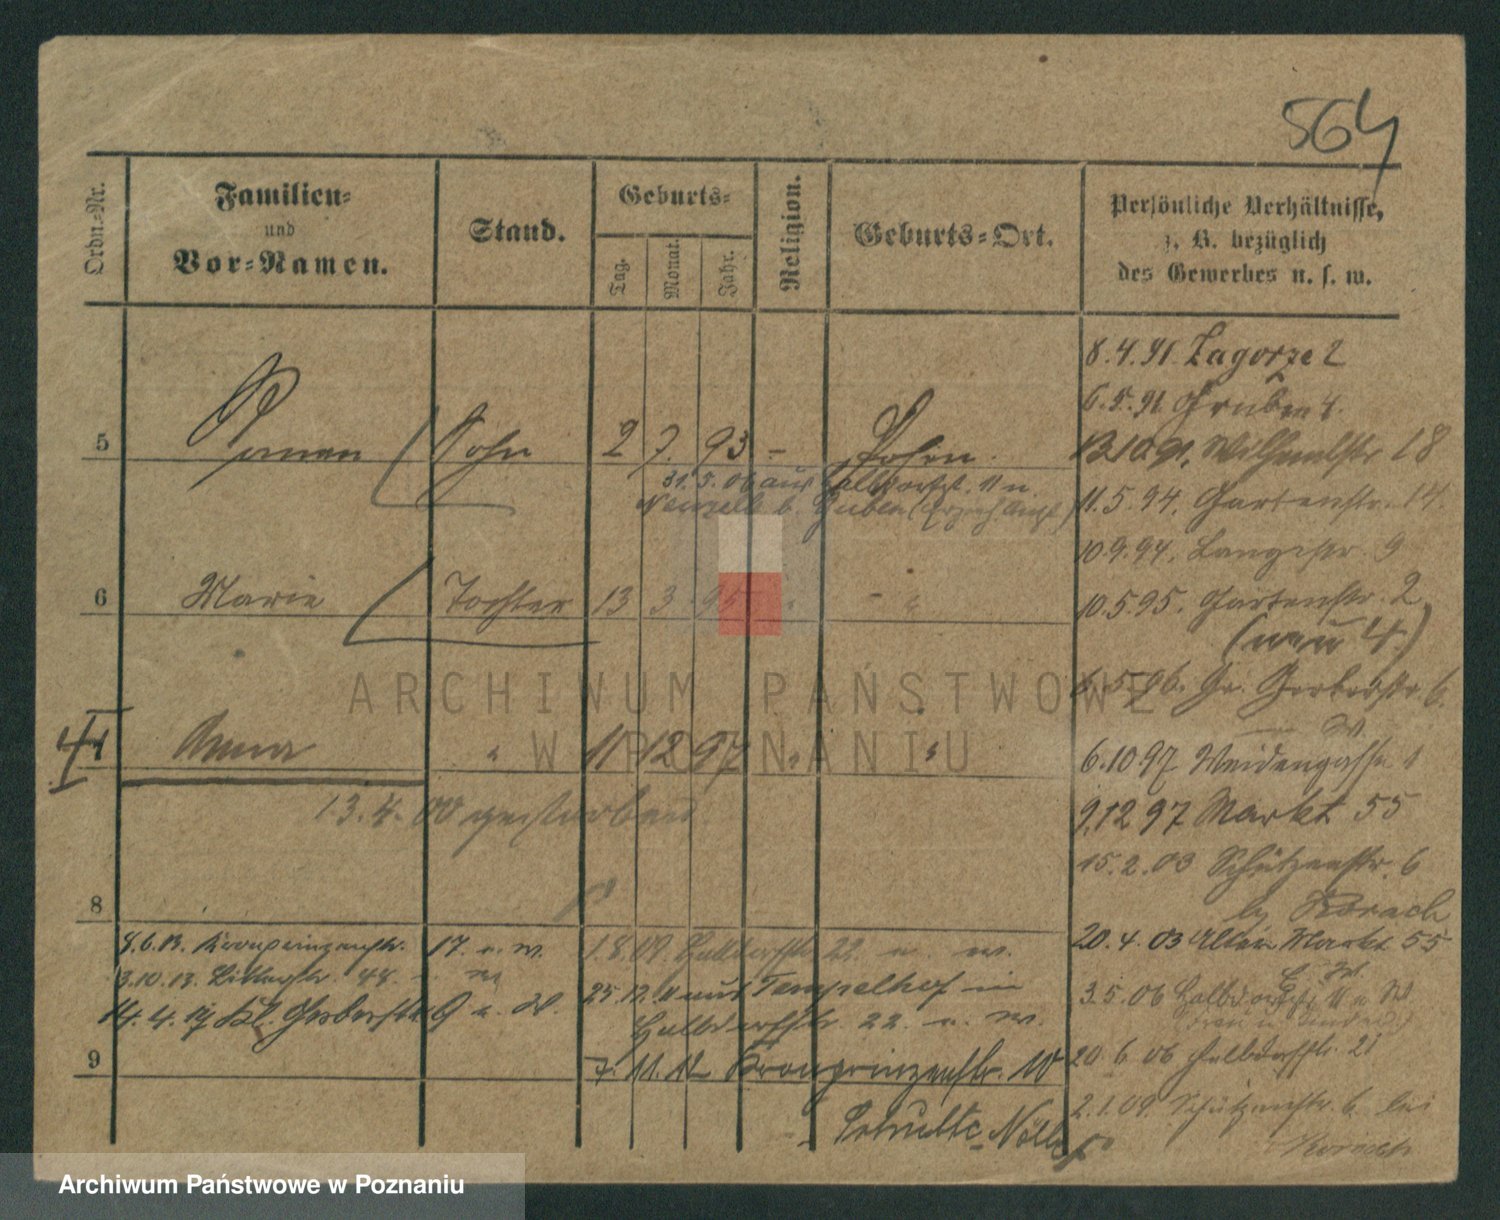 564
Ordn.-Nr.
Familien-
und
Vor-Namen.
Stand.
Geburts-
Tag.
Monat.
Jahr.
Religion.
Geburts-Ort.
Persönliche Verhältnisse,
z. B. bezüglich
des Gewerbes u. s. w.
8.4.91. Zagorze 2
6.5.91 Gruben 4.
13.10.91. Wilhelmstr. 18
5 Roman Sohn 2 7. 93 – Posen.
31.5.06 aus Halbdorfst. 11 n.
Neuzelle b. Guben
11.5.94. Gartenstr. 14
10.9.94. Langestr. 9
6 Marie Tochter 13 3 95 " – "
10.5.95. Gartenstr. 2
(neu 4.)
6.5.96. Gr. Gerberstr. 6.
ARCHIWUM PAŃSTWOWE
W POZNANIU
Anna " 11 12 97 " "
6.10.97 Weidengasse 1
13.4.00 gestorben.
9.12 97 Markt 55
15.2.03 Schützenstr. 6
8
20.4.03 Alter Markt 55
8.6.13. Kronprinzenstr. 17. n. W.
1.8.09. Halbdorfstr. 22. n. W.
3.10.13. 44. n. W
25.12.11 aus Tempelhof in
Halbdorfstr. 22. n. W.
3.5.06 Halbdorfstr. 11 n W
14.4.17 Kl. Gerberstr. 9 n. W.
9
7.11.12 Kronprinzenstr. 10
20.6.06 Halbdorfstr. 21
2.1.09. Schützenstr. 6. bei
Schultz
Archiwum Państwowe w Poznaniu